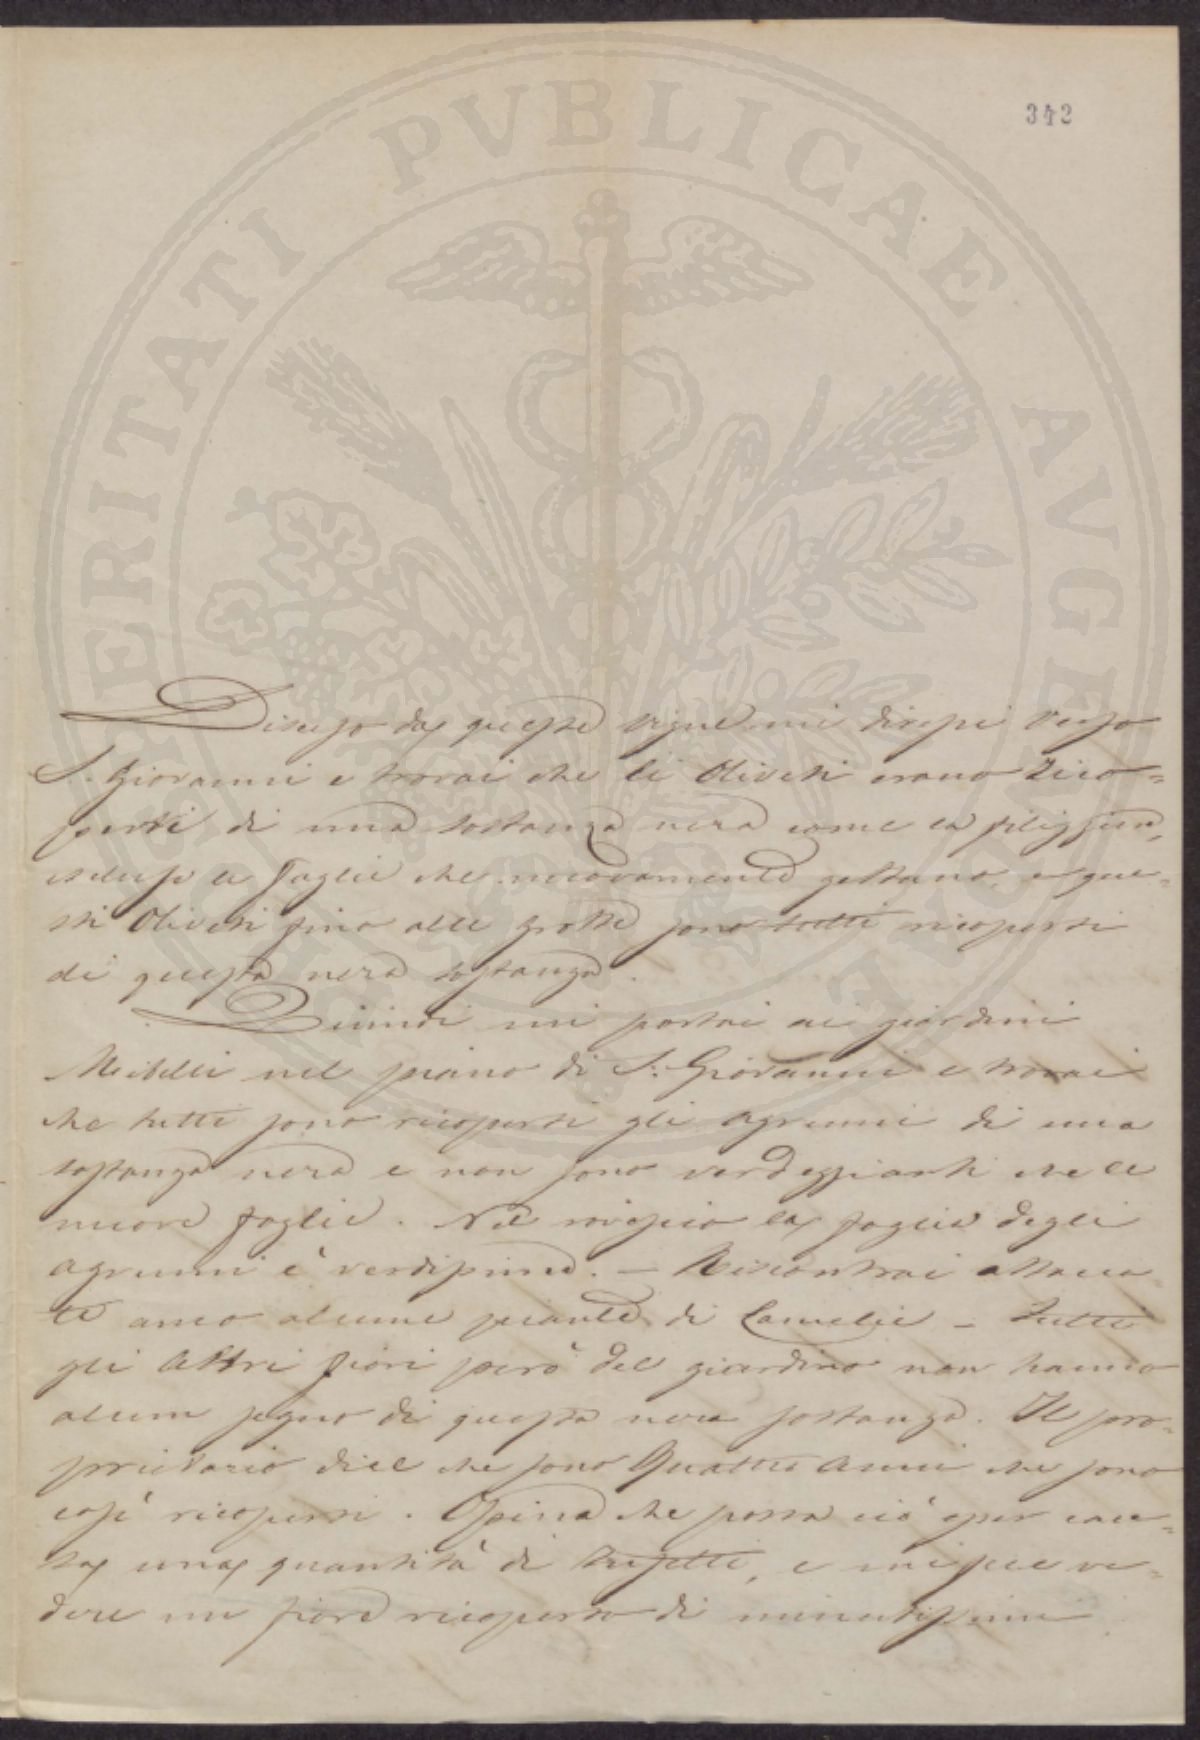 342
PROSPERITATI PVBLICAE AVGENDAE
Disceso da queste vigne mi diressi verso
S. Giovanni e trovai che li Oliveti erano rico-
perti di una sostanza nera come la filiggine,
escluse le foglie che nuovamente gettano, e que-
sti Oliveti fino alle grotte sono tutti ricoperti
di questa nera sostanza.
Quindi mi portai ai giardini
nel piano di S. Giovanni e trovai
che tutti sono ricoperti gli agrumi di una
sostanza nera e non sono verdeggianti che le
nuove foglie. Nel rovescio la foglia degli
agrumi è verdissima. — Riscontrai attacca
te anco alcune piante di Camelie — Tutti
gli altri fiori però del giardino non hanno
alcun segno di questa nera sostanza. Il pro-
prietario dice che sono quattro anni che sono
così ricoperti. Opina che possa ciò esser cau-
sa una quantità di insetti, e mi fece ve-
dere un fiore ricoperto di minutissimi